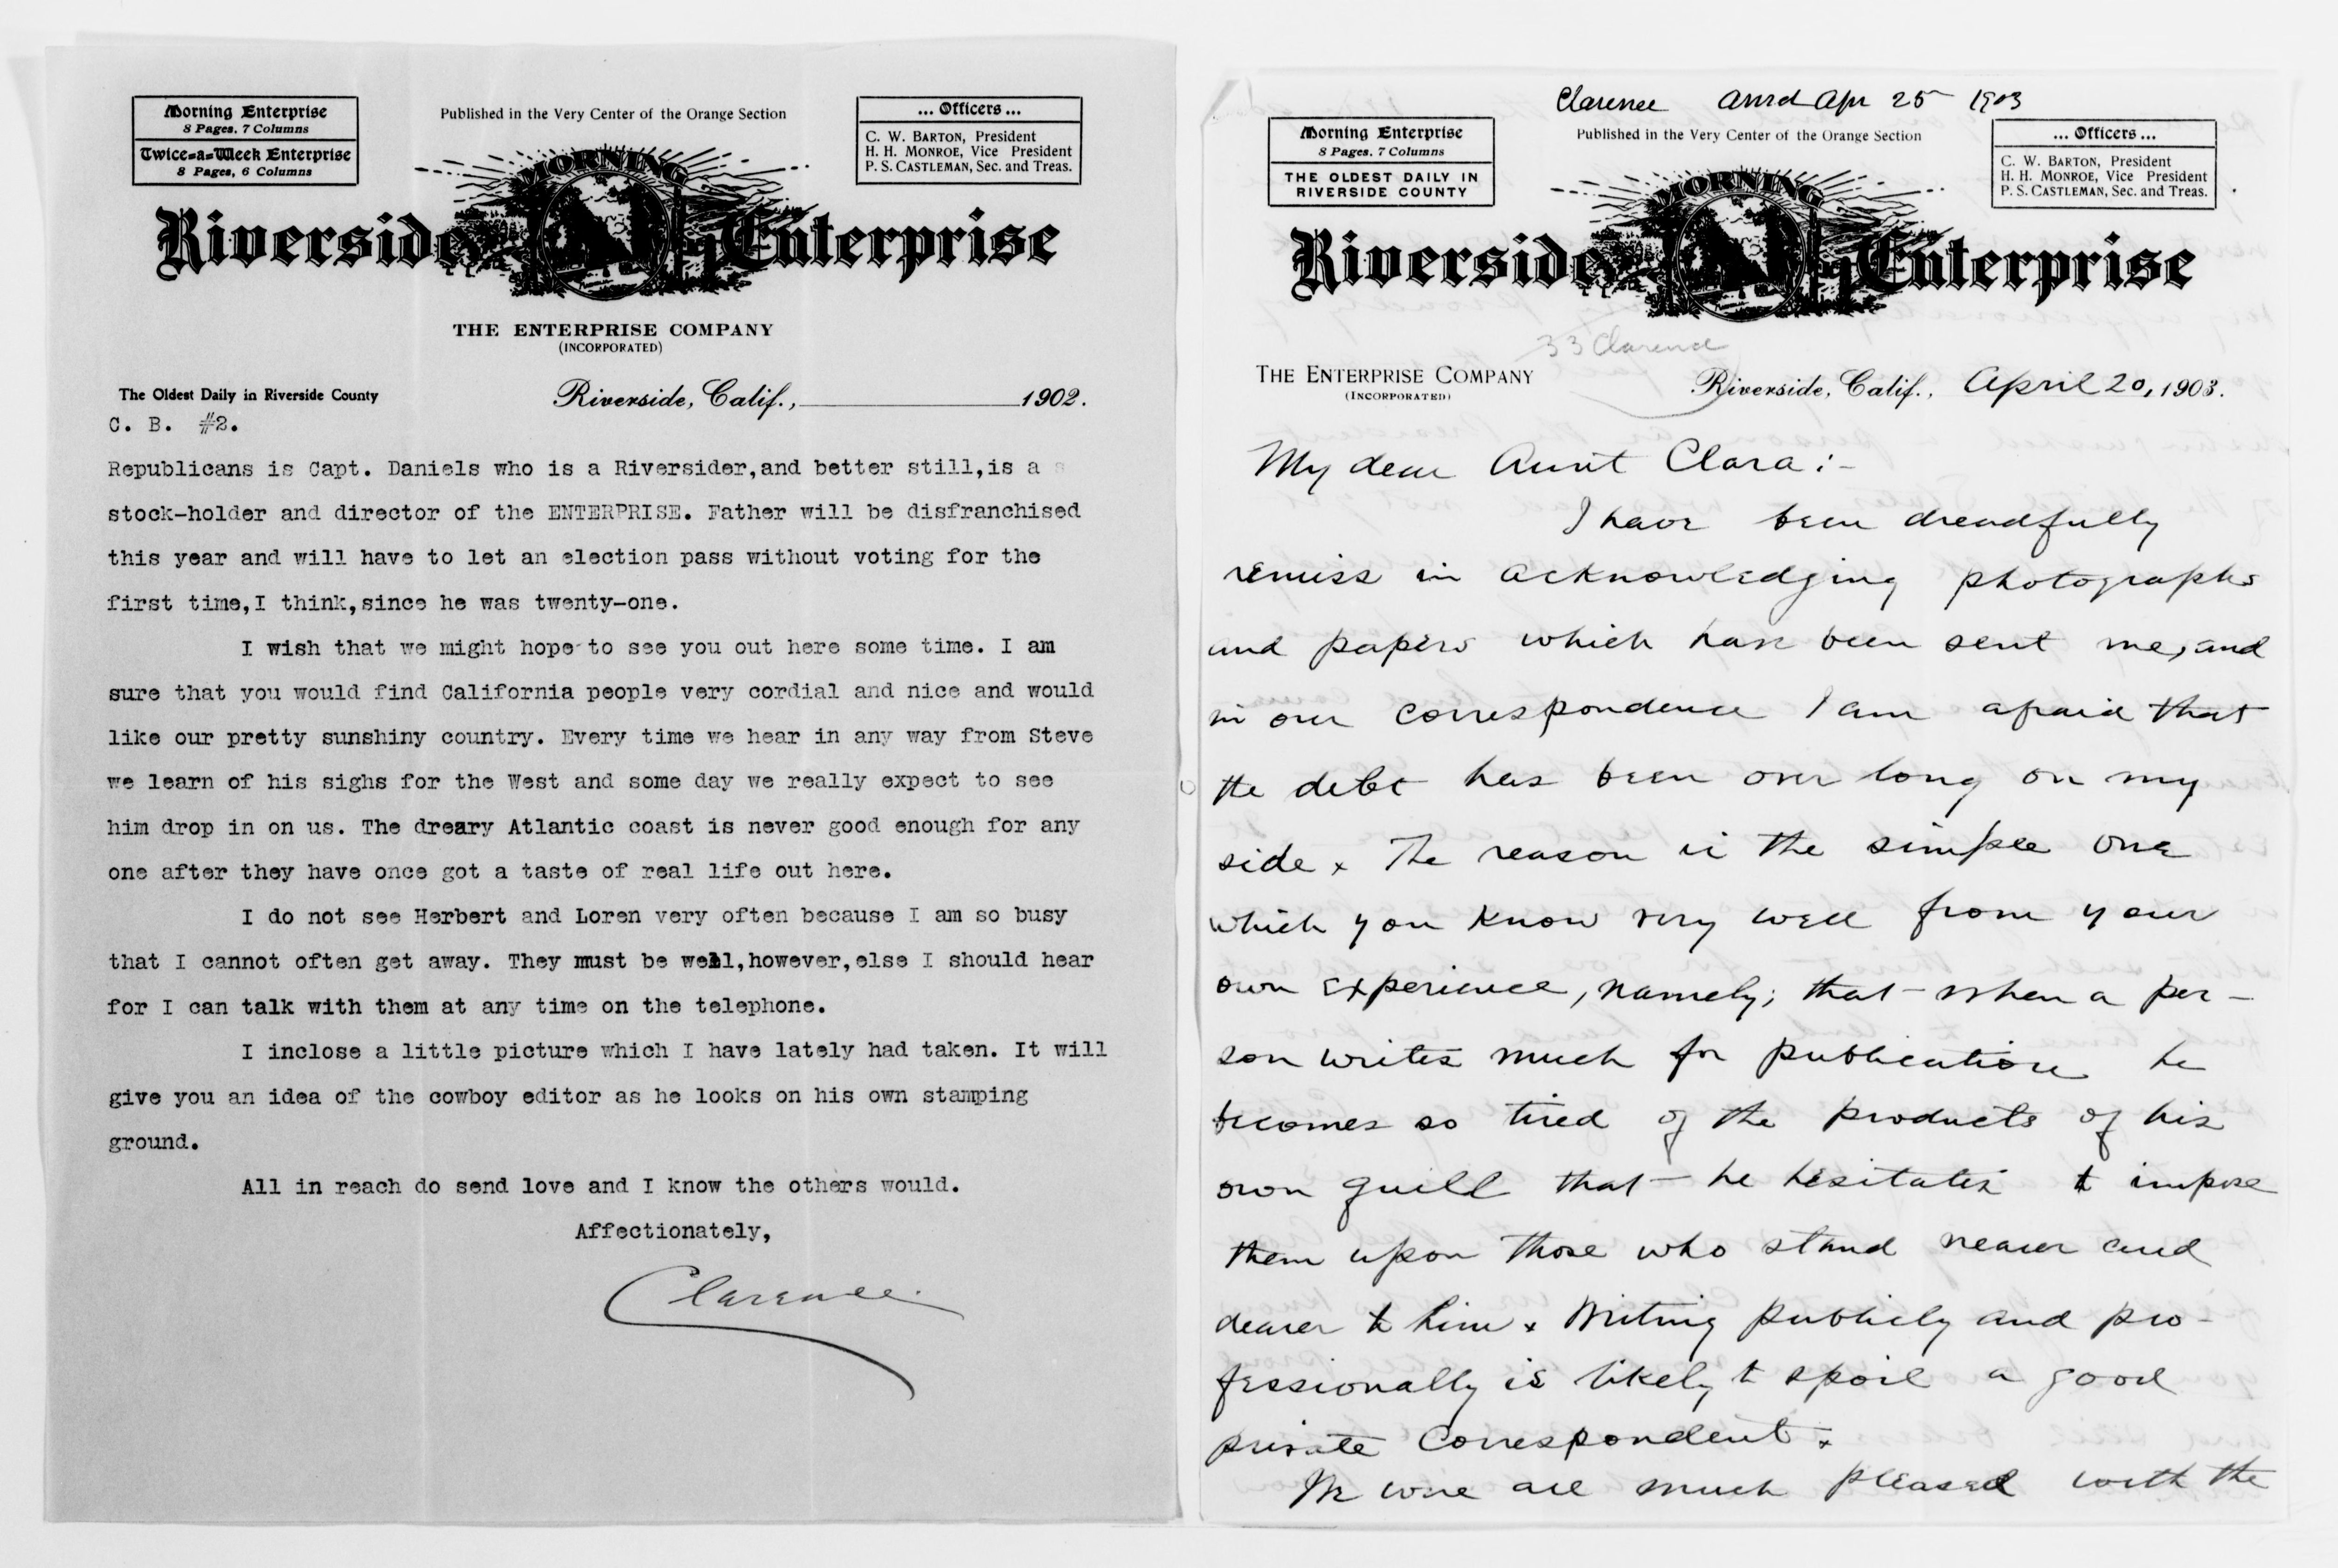 Morning Enterprise
8 Pages. 7 Columns
Twice=a=Week Enterprise
8 Pages, 6 Columns
Published in the Very Center of the Orange Section
... Officers ...
C. W. BARTON, President
H. H. MONROE, Vice President
P. S. CASTLEMAN, Sec. and Treas.
MORNING
Riverside Enterprise
THE ENTERPRISE COMPANY
(INCORPORATED)
The Oldest Daily in Riverside County
Riverside, Calif., 1902.
C. B. #2.
Republicans is Capt. Daniels who is a Riversider,and better still,is a s
stock-holder and director of the ENTERPRISE. Father will be disfranchised
this year and will have to let an election pass without voting for the
first time,I think,since he was twenty-one.
I wish that we might hope to see you out here some time. I am
sure that you would find California people very cordial and nice and would
like our pretty sunshiny country. Every time we hear in any way from Steve
we learn of his sighs for the West and some day we really expect to see
him drop in on us. The dreary Atlantic coast is never good enough for any
one after they have once got a taste of real life out here.
I do not see Herbert and Loren very often because I am so busy
that I cannot often get away. They must be well,however,else I should hear
for I can talk with them at any time on the telephone.
I inclose a little picture which I have lately had taken. It will
give you an idea of the cowboy editor as he looks on his own stamping
ground.
All in reach do send love and I know the others would.
Affectionately,
Clarence.
Clarence Anrd Apr 25 1903
Morning Enterprise
8 Pages. 7 Columns
THE OLDEST DAILY IN
RIVERSIDE COUNTY
Published in the Very Center of the Orange Section
... Officers ...
C. W. BARTON, President
H. H. MONROE, Vice President
P. S. CASTLEMAN, Sec. and Treas.
MORNING
Riverside Enterprise
33 Clarence
THE ENTERPRISE COMPANY
(INCORPORATED)
Riverside, Calif., April 20, 1903.
My dear Aunt Clara:-
I have been dreadfully
remiss in acknowledging photographs
and papers which have been sent me, and
in our correspondence I am afraid that
the debt has been over long on my
side x The reason is the simple one
which you know very well from your
own experience, namely; that when a per-
son writes much for publication he
becomes so tired of the products of his
own quill that he hesitates to impose
them upon those who stand nearer and
dearer to him x Writing publicly and pro-
fessionally is likely to spoil a good
private correspondent x
We were all much pleased with the